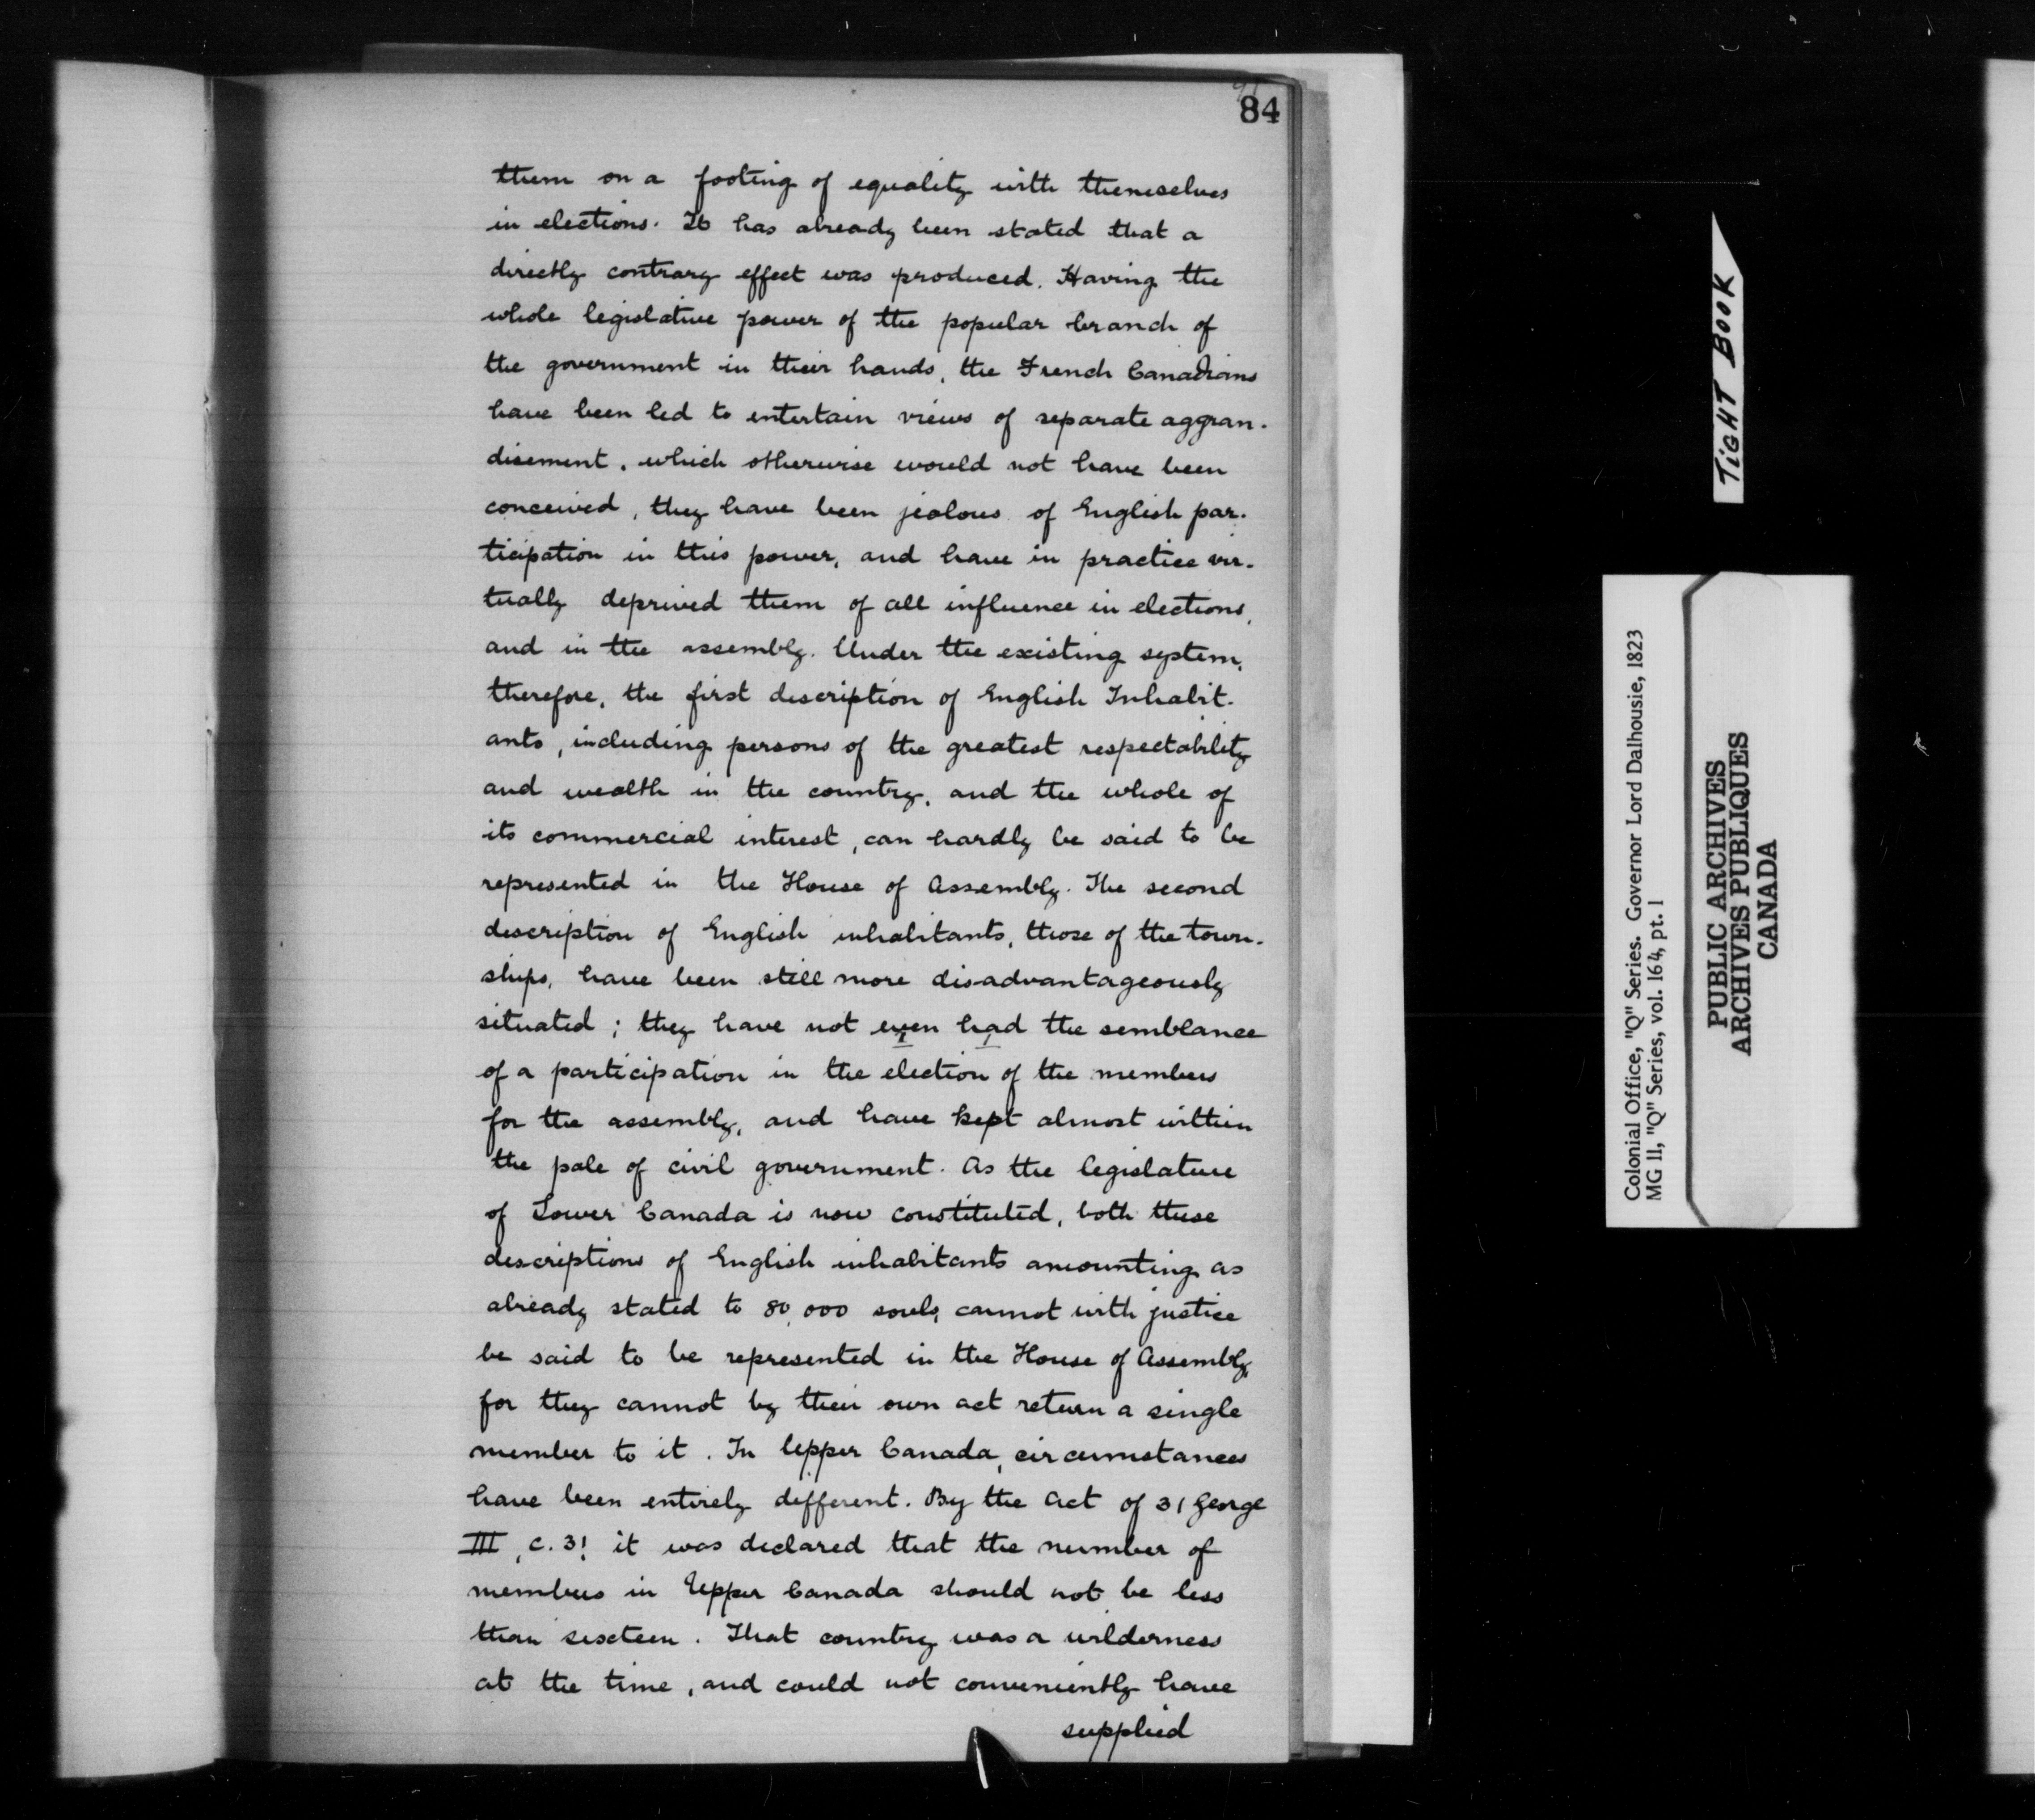 84
them on a footing of equality with themselves
in elections. It has already been stated that a
directly contrary effect was produced. Having the
whole legislative power of the popular branch of
the government in their hands, the French Canadians
have been led to entertain views of separate aggran-
disement, which otherwise would not have been
conceived, they have been jealous of English par-
ticipation in this power, and have in practice vir-
tually deprived them of all influence in elections,
and in the assembly. Under the existing system,
therefore, the first description of English Inhabit-
ants, including persons of the greatest respectability
and wealth in the country, and the whole of
its commercial interest, can hardly be said to be
represented in the House of Assembly. The second
description of English inhabitants, those of the town-
ships, have been still more disadvantageously
situated; they have not even had the semblance
of a participation in the election of the members
for the assembly, and have kept almost within
the pale of civil government. As the legislature
of Lower Canada is now constituted, both these
descriptions of English inhabitants amounting as
already stated to 80,000 souls, cannot with justice
be said to be represented in the House of Assembly,
for they cannot by their own act return a single
member to it. In Upper Canada, circumstances
have been entirely different. By the Act of 31 George
III, c. 31 it was declared that the number of
members in Upper Canada should not be less
than sixteen. That country was a wilderness
at the time, and could not conveniently have
supplied
TIGHT BOOK
Colonial Office, "Q" Series. Governor Lord Dalhousie, 1823
MG 11, "Q" Series, vol. 164, pt. 1
PUBLIC ARCHIVES
ARCHIVES PUBLIQUES
CANADA